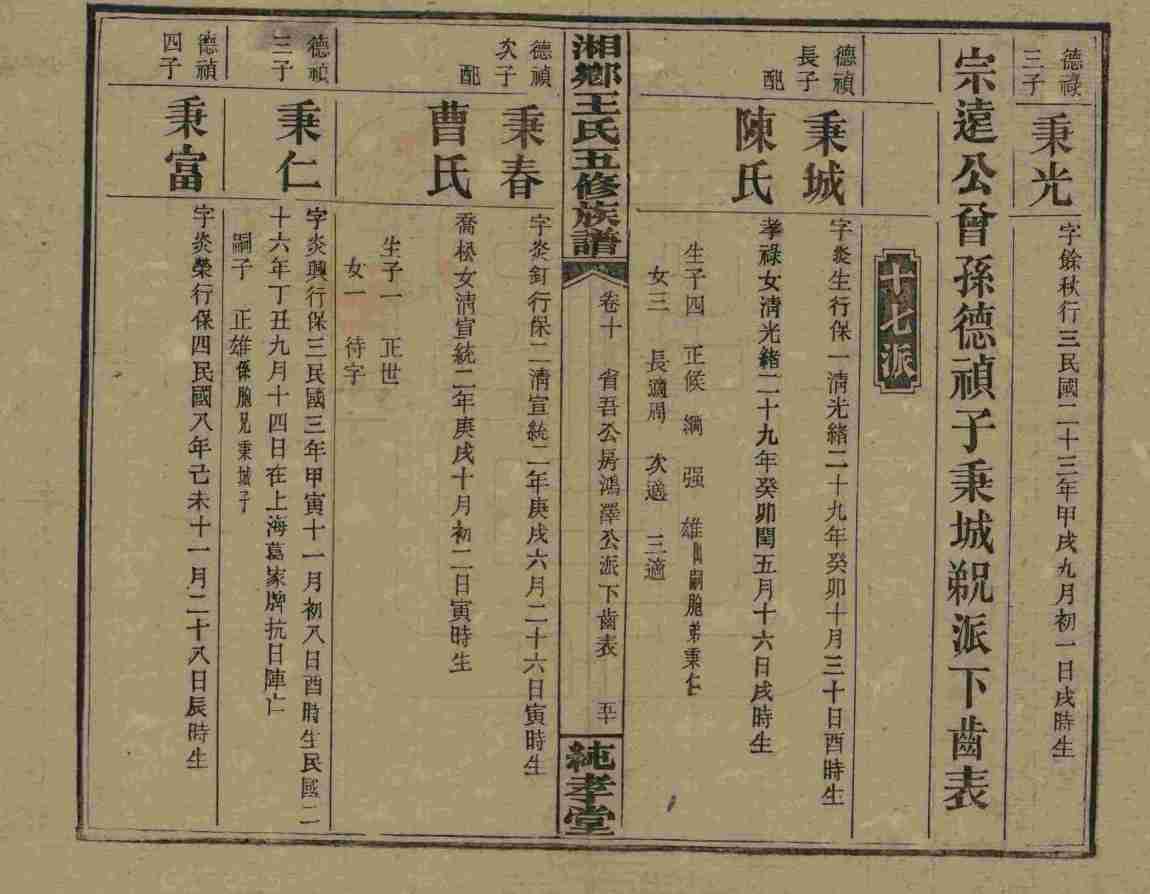 德祿
三子
秉光
字餘秋行三民國二十三年甲戌九月初一日戌時生
宗遠公曾孫德禎子秉城覜派下齒表
十七派
德禎
長子
秉城
字炎生行保一清光緒二十九年癸卯十月三十日酉時生
配
陳氏
孝祿女清光緒二十九年癸卯閏五月十六日戌時生
生子四 正候 綱 强 雄出嗣胞弟秉仁
女三 長適周 次適 三適
湘鄉王氏五修族譜
卷十 省吾公房鴻澤公派下齒表 五十
純孝堂
德禎
次子
秉春
字炎釘行保二清宣統二年庚戌六月二十六日寅時生
配
曹氏
喬松女清宣統二年庚戌十月初二日寅時生
生子一 正世
女一 待字
德禎
三子
秉仁
字炎興行保三民國三年甲寅十一月初八日酉時生民國二
十六年丁丑九月十四日在上海葛家牌抗日陣亡
嗣子 正雄係胞兄秉城子
德禎
四子
秉富
字炎榮行保四民國八年己未十一月二十八日辰時生